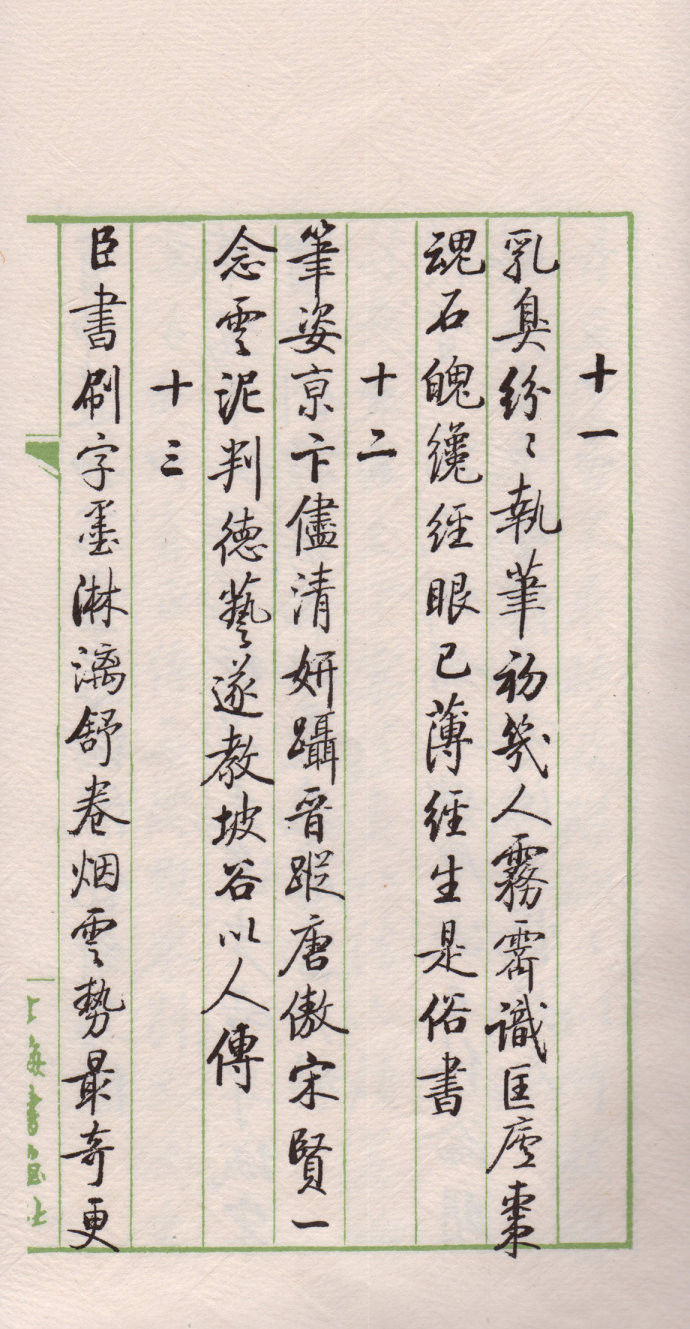 十一
乳臭紛〻執筆初幾人霧霽識匡廬棗
魂石魄纔經眼已薄經生是俗書
十二
筆姿京卞儘清妍躡晉蹤唐傲宋賢一
念雲泥判德藝遂教坡谷以人傳
十三
臣書刷字墨淋漓舒卷烟雲勢最奇更
上海書畫社